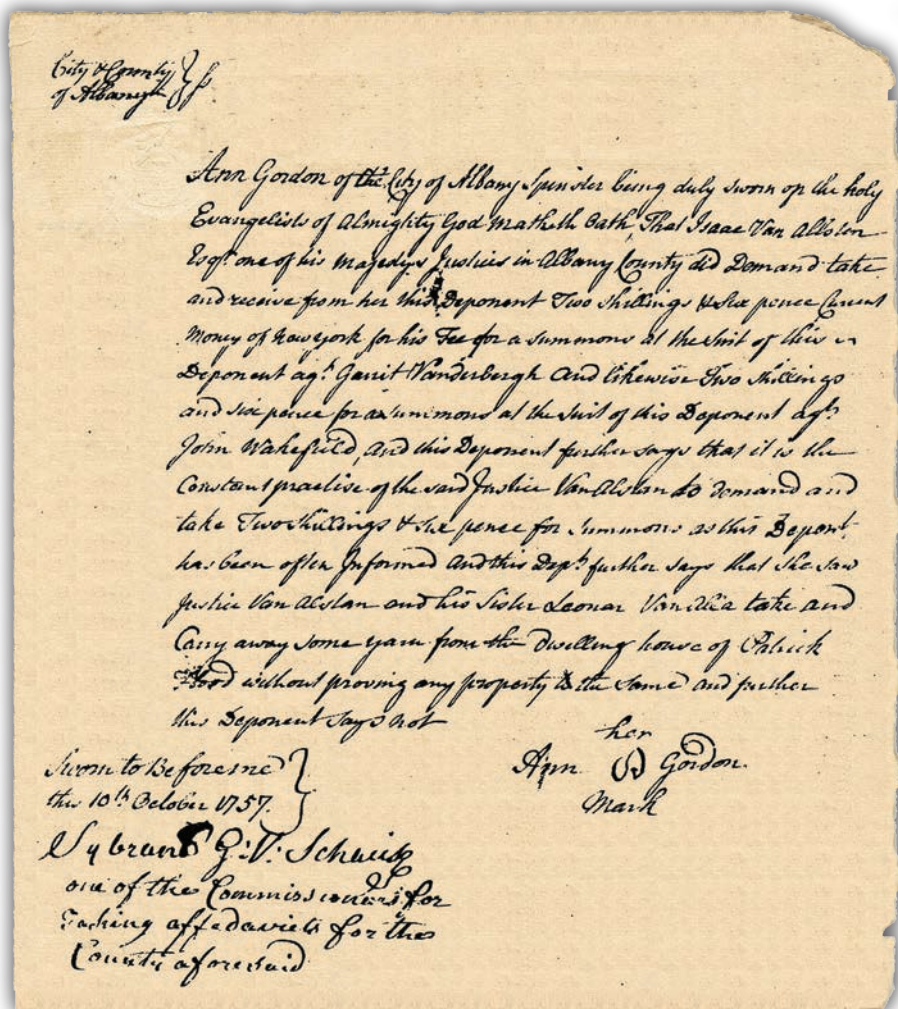 City & County
of Albany } ss
Ann Gordon of the City of Albany Spinster being duly sworn on the holy
Evangelists of Almighty God Maketh Oath, That Isaac Van Allsten
Esqr. one of his Magestys Justices in Albany County did Demand take
and receive from her this Deponent Two Shillings & Six pence Current
Money of New york for his Fee for a summons at the Suit of this
Deponent agt. Garrit Vanderbergh And likewise Two Shillings
and six pence for a summons at the Suit of this Deponent agt.
John Wakefield, and this Deponent further says that it is the
Constant practise of the said Justice Van Alstan to demand and
take Two Shillings & six pence for Summons as this Depont.
has been often Informed And this Dept. further says that she saw
Justice Van Alstan and his Sister Leonar Van take and
Carry away some yarn from the Dwelling house of Patrick
Flood without proving any property to the same and further
this Deponent says not
her
Ann Gordon.
Mark
Sworn to Before me
this 10th. October 1757. }
Sybrant G: V: Schaick
one of the Commissioners for
Taking affedavits for the
County aforesaid